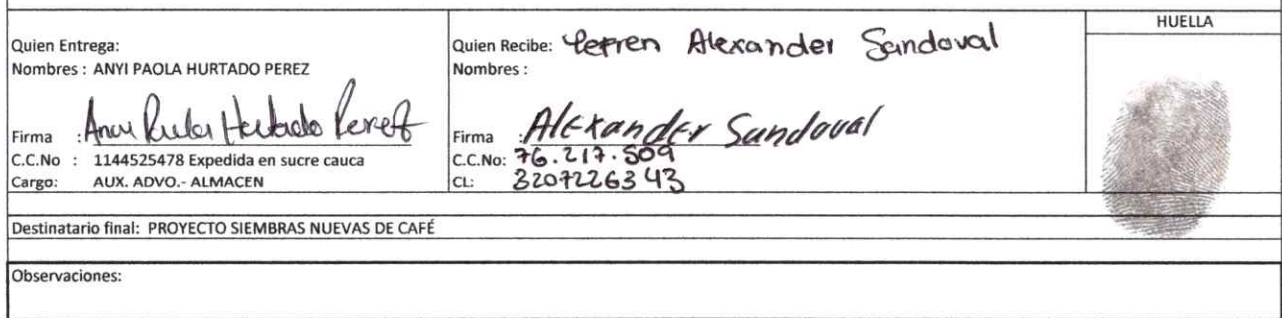 HUELLA
Quien Entrega:
Nombres : ANYI PAOLA HURTADO PEREZ
Firma : Anyi Paola Hurtado Perez
C.C.No : 1144525478 Expedida en sucre cauca
Cargo: AUX. ADVO.- ALMACEN
Quien Recibe: Alexander Sandoval
Nombres :
Firma : Alexander Sandoval
C.C.No: 76.217.509
CL: 3207226343
Destinatario final: PROYECTO SIEMBRAS NUEVAS DE CAFÉ
Observaciones: